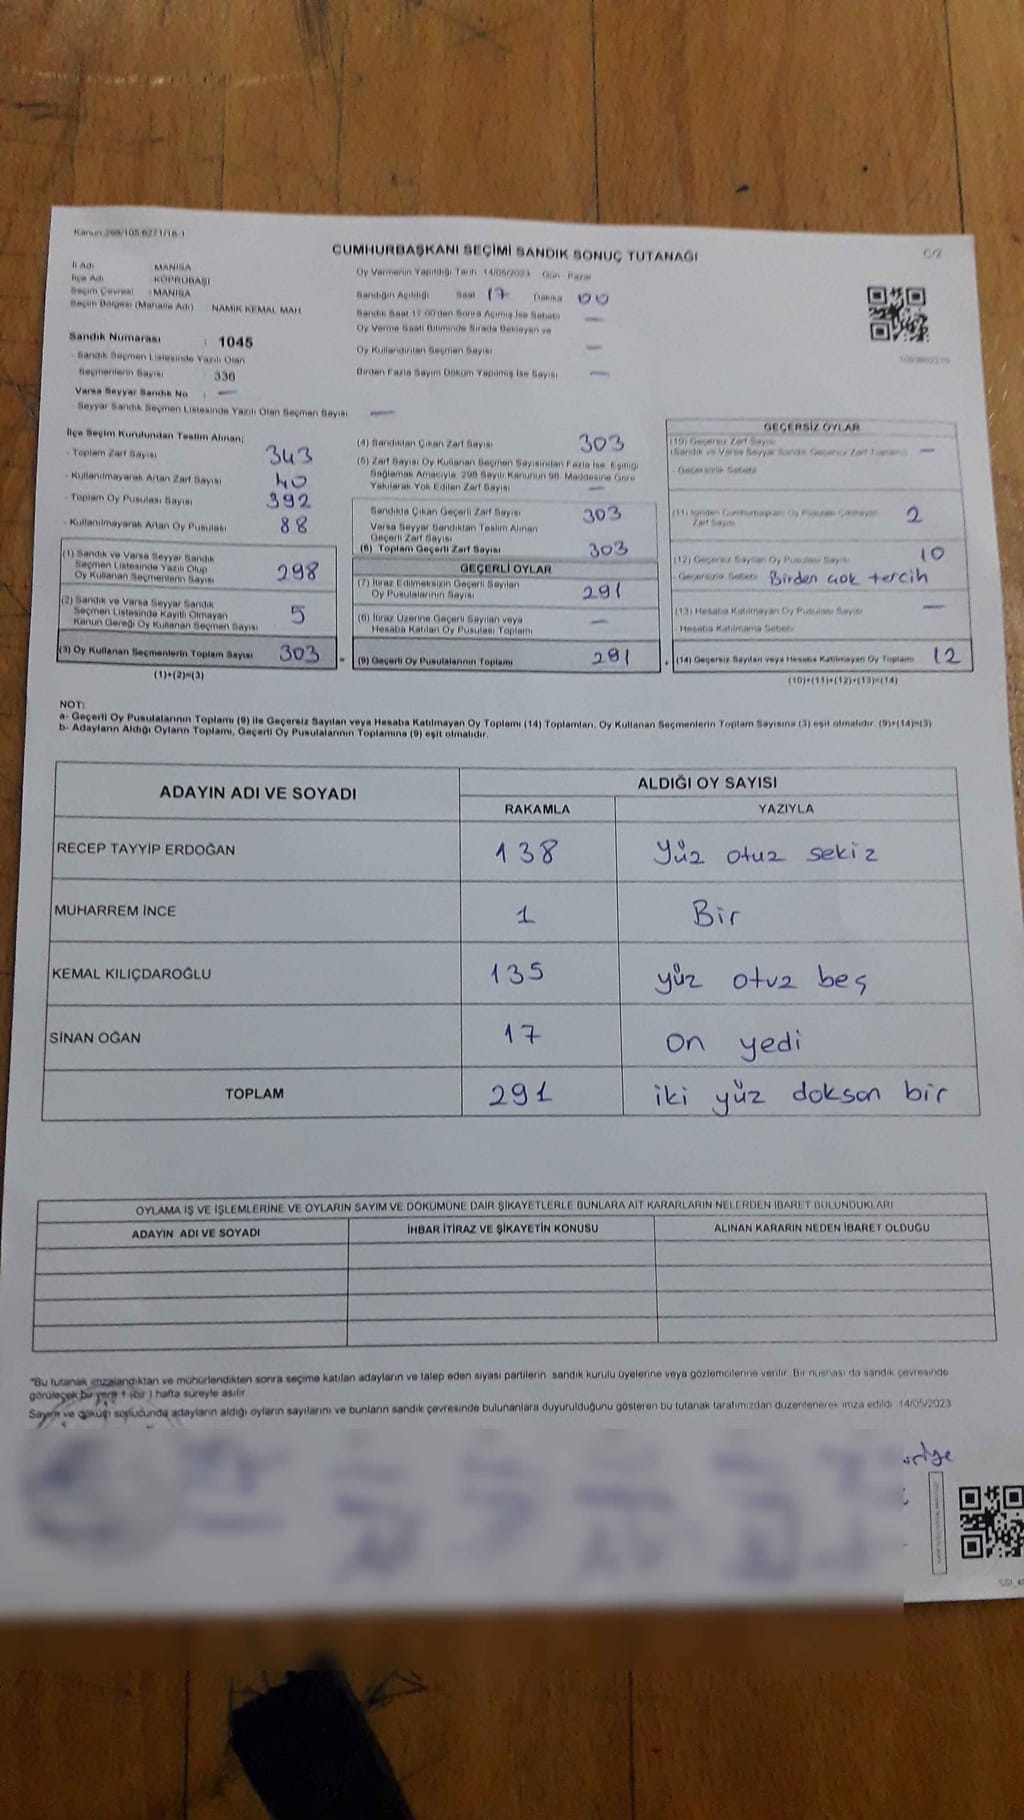 Kanun:298/105 6271/18-1
CUMHURBAŞKANI SEÇİMİ SANDIK SONUÇ TUTANAĞI
C/2
İl Adı MANİSA
İlçe Adı KÖPRÜBAŞI
Seçim Çevresi : MANİSA
Seçim Bölgesi (Mahalle Adı) NAMIK KEMAL MAH
Sandık Numarası : 1045
- Sandık Seçmen Listesinde Yazılı Olan
Seçmenlerin Sayısı 336
Varsa Seyyar Sandık No : —
- Seyyar Sandık Seçmen Listesinde Yazılı Olan Seçmen Sayısı —
Oy Vermenin Yapıldığı Tarih 14/05/2023 Gün Pazar
Sandığın Açıldığı Saat 17 Dakika 00
Sandık Saat 17.00'den Sonra Açılmış İse Sebebi —
Oy Verme Saati Bitiminde Sırada Bekleyen ve
Oy Kullandırılan Seçmen Sayısı —
Birden Fazla Sayım Döküm Yapılmış İse Sayısı —
İlçe Seçim Kurulundan Teslim Alınan;
- Toplam Zarf Sayısı 343
- Kullanılmayarak Artan Zarf Sayısı 40
- Toplam Oy Pusulası Sayısı 392
- Kullanılmayarak Artan Oy Pusulası 88
(1) Sandık ve Varsa Seyyar Sandık
Seçmen Listesinde Yazılı Olup
Oy Kullanan Seçmenlerin Sayısı 298
(2) Sandık ve Varsa Seyyar Sandık
Seçmen Listesinde Kayıtlı Olmayan
Kanun Gereği Oy Kullanan Seçmen Sayısı 5
(3) Oy Kullanan Seçmenlerin Toplam Sayısı 303
(1)+(2)=(3)
(4) Sandıktan Çıkan Zarf Sayısı 303
(5) Zarf Sayısı Oy Kullanan Seçmen Sayısından Fazla İse, Eşitliği
Sağlamak Amacıyla, 298 Sayılı Kanunun 98. Maddesine Göre
Yakılarak Yok Edilen Zarf Sayısı —
Sandıkta Çıkan Geçerli Zarf Sayısı 303
Varsa Seyyar Sandıktan Teslim Alınan
Geçerli Zarf Sayısı
(6) Toplam Geçerli Zarf Sayısı 303
GEÇERLİ OYLAR
(7) İtiraz Edilmeksizin Geçerli Sayılan
Oy Pusulalarının Sayısı 291
(8) İtiraz Üzerine Geçerli Sayılan veya
Hesaba Katılan Oy Pusulası Toplamı —
(9) Geçerli Oy Pusulalarının Toplamı 291
GEÇERSİZ OYLAR
(10) Geçersiz Zarf Sayısı
(Sandık ve Varsa Seyyar Sandık Geçersiz Zarf Toplamı) —
- Geçersizlik Sebebi
(11) İçinden Cumhurbaşkanı Oy Pusulası Çıkmayan
Zarf Sayısı 2
(12) Geçersiz Sayılan Oy Pusulası Sayısı 10
- Geçersizlik Sebebi Birden çok tercih
(13) Hesaba Katılmayan Oy Pusulası Sayısı —
- Hesaba Katılmama Sebebi
(14) Geçersiz Sayılan veya Hesaba Katılmayan Oy Toplamı 12
(10)+(11)+(12)+(13)=(14)
NOT:
a- Geçerli Oy Pusulalarının Toplamı (9) ile Geçersiz Sayılan veya Hesaba Katılmayan Oy Toplamı (14) Toplamları, Oy Kullanan Seçmenlerin Toplam Sayısına (3) eşit olmalıdır. (9)+(14)=(3)
b- Adayların Aldığı Oyların Toplamı, Geçerli Oy Pusulalarının Toplamına (9) eşit olmalıdır.
ADAYIN ADI VE SOYADI ALDIĞI OY SAYISI
RAKAMLA YAZIYLA
RECEP TAYYİP ERDOĞAN 138 Yüz otuz sekiz
MUHARREM İNCE 1 Bir
KEMAL KILIÇDAROĞLU 135 yüz otuz beş
SİNAN OĞAN 17 on yedi
TOPLAM 291 iki yüz doksan bir
OYLAMA İŞ VE İŞLEMLERİNE VE OYLARIN SAYIM VE DÖKÜMÜNE DAİR ŞİKAYETLERLE BUNLARA AİT KARARLARIN NELERDEN İBARET BULUNDUKLARI
ADAYIN ADI VE SOYADI İHBAR İTİRAZ VE ŞİKAYETİN KONUSU ALINAN KARARIN NEDEN İBARET OLDUĞU
"Bu tutanak imzalandıktan ve mühürlendikten sonra seçime katılan adayların ve talep eden siyasi partilerin sandık kurulu üyelerine veya gözlemcilerine verilir. Bir nüshası da sandık çevresinde
görülecek bir yere 1 (bir) hafta süreyle asılır.
Sayım ve döküm sonucunda adayların aldığı oyların sayılarını ve bunların sandık çevresinde bulunanlara duyurulduğunu gösteren bu tutanak tarafımızdan düzenlenerek imza edildi. 14/05/2023